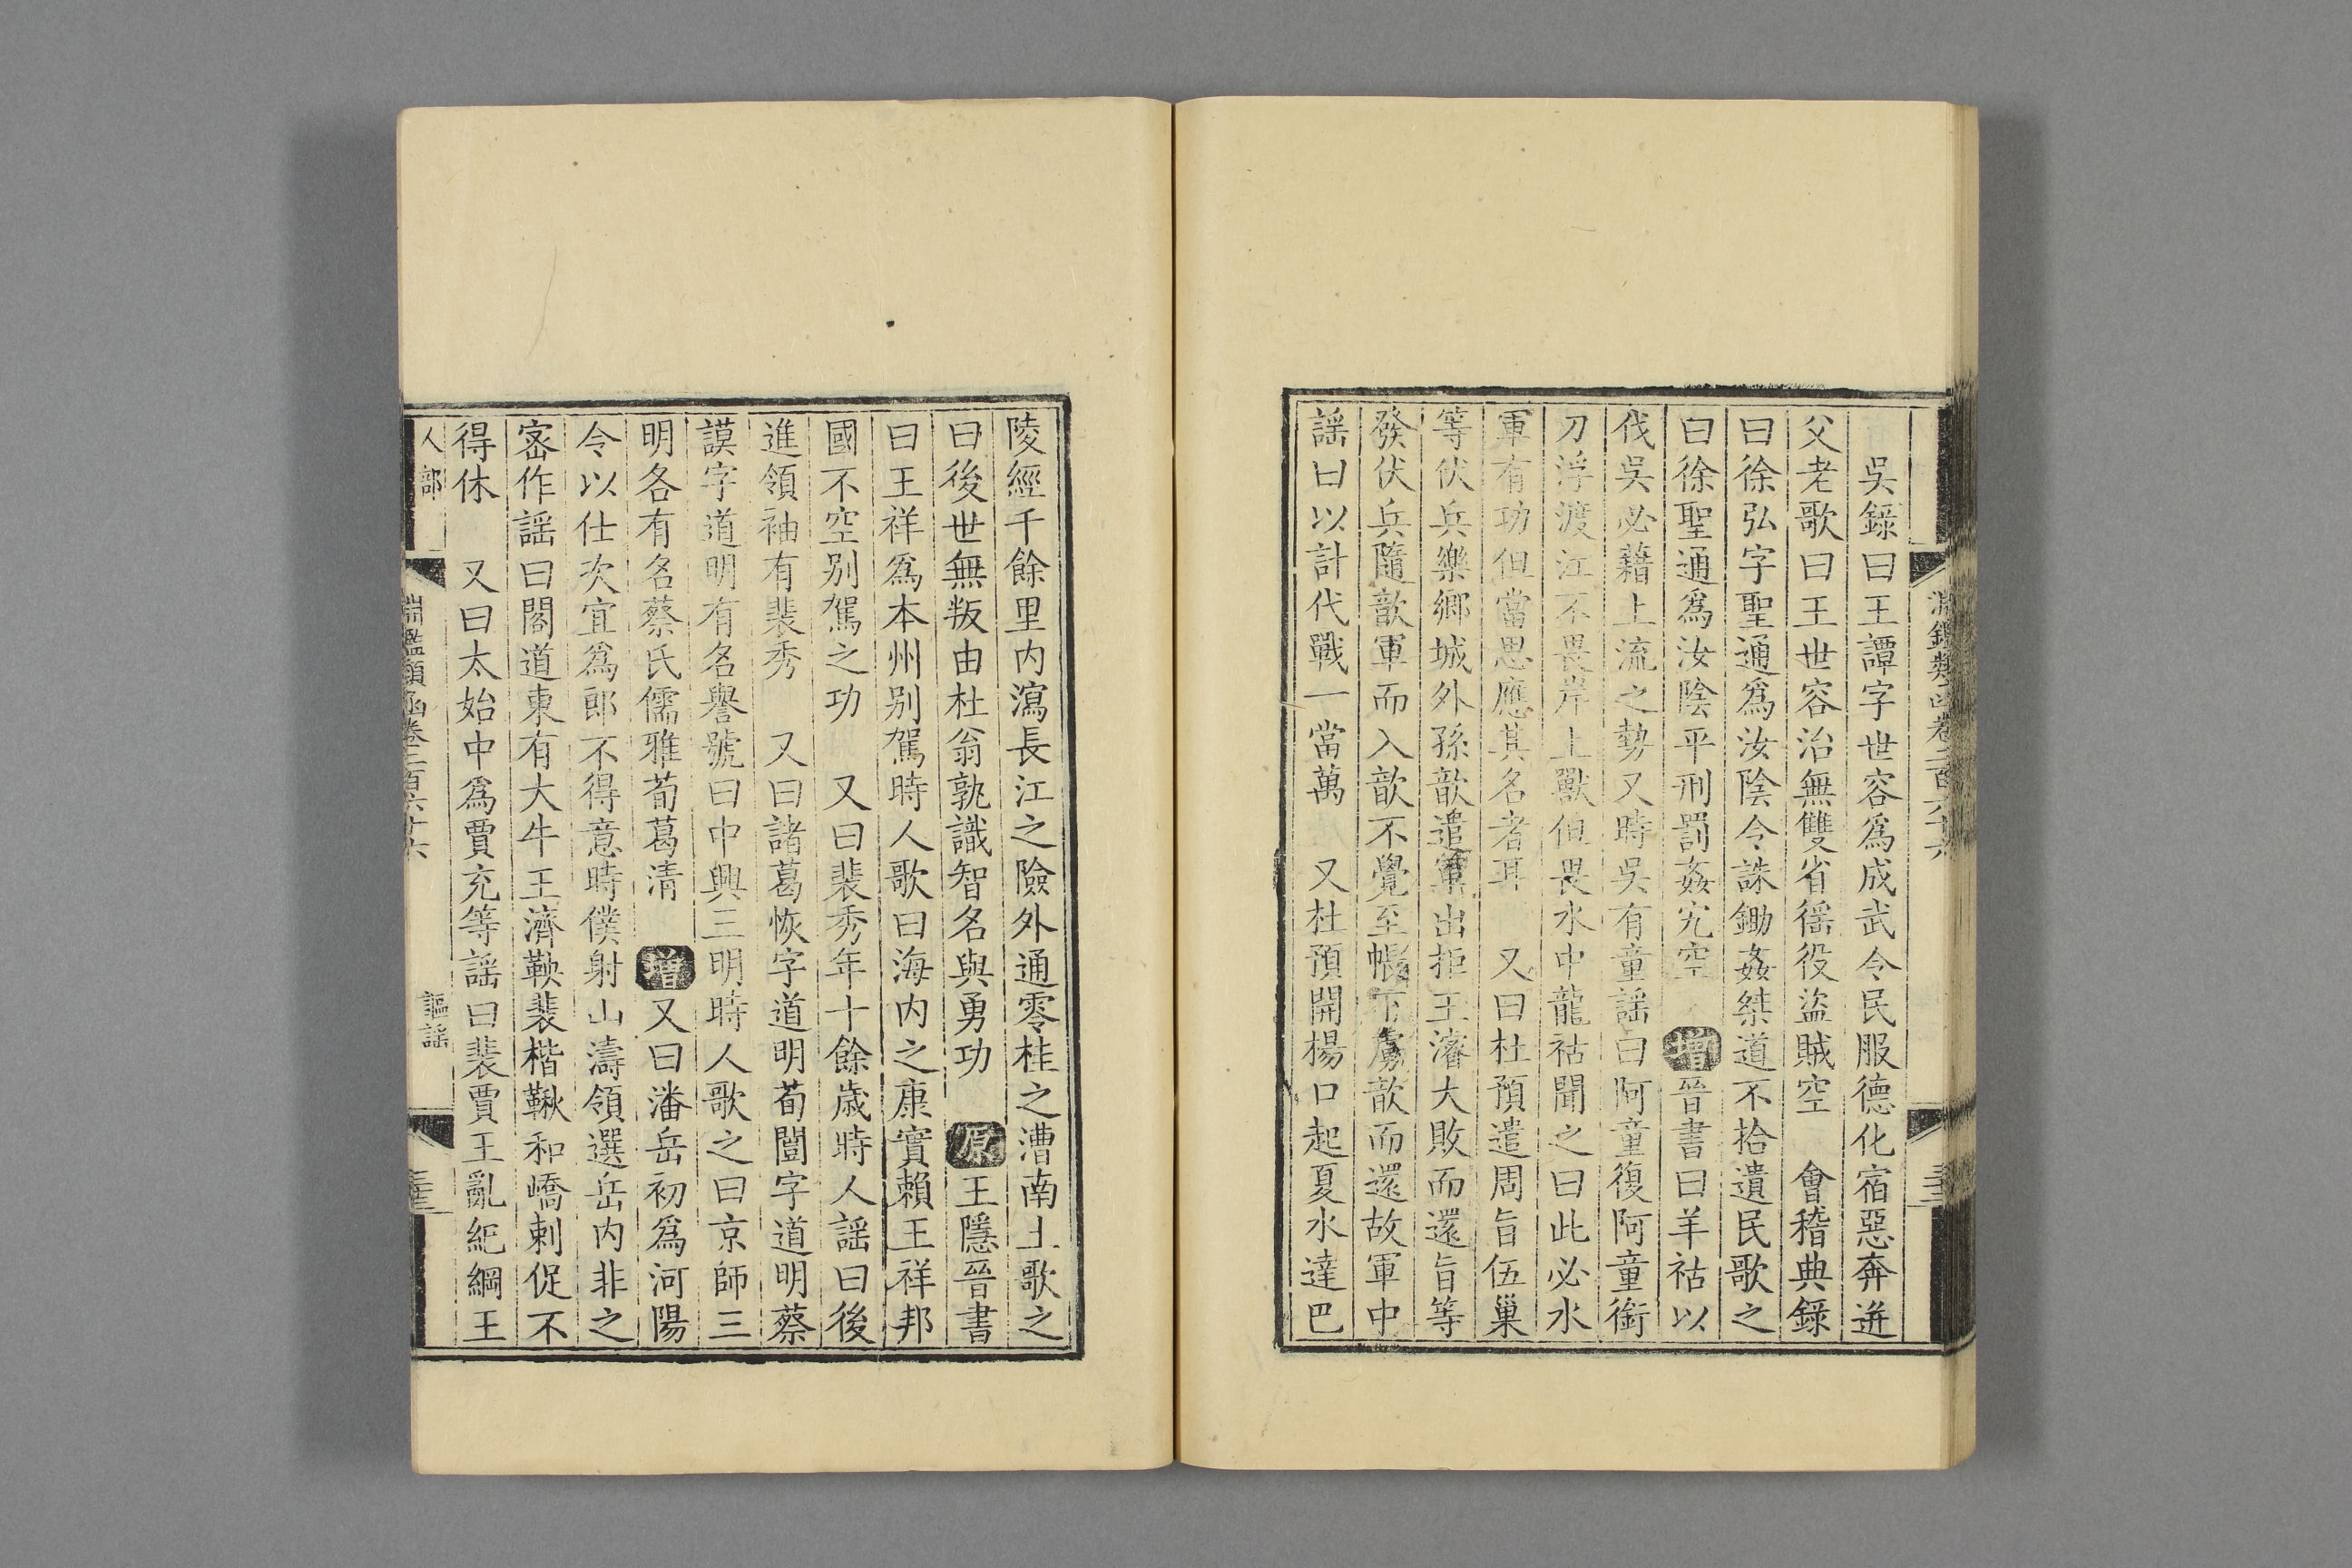 吳錄曰王譚字世容爲成武令民服德化宿惡奔迸
父老歌曰王世容治無雙省徭役盜賊空　會稽典錄
曰徐弘字聖通爲汝陰令誅鋤姦桀道不拾遺民歌之
曰徐聖通爲汝陰平刑罰姦宄空　增晉書曰羊祜以
伐吳必藉上流之勢又時吳有童謠曰阿童復阿童銜
刀浮渡江不畏岸上獸但畏水中龍祜聞之曰此必水
軍有功但當思應其名者耳　又曰杜預遣周旨伍巢
等伏兵樂鄉城外孫歆遣軍出拒王濬大敗而還旨等
發伏兵隨歆軍而入歆不覺至帳下虜歆而還故軍中
謠曰以計代戰一當萬　又杜預開楊口起夏水達巴
陵經千餘里內瀉長江之險外通零桂之漕南土歌之
曰後世無叛由杜翁孰識智名與勇功　原王隱晉書
曰王祥爲本州别駕時人歌曰海內之康實賴王祥邦
國不空别駕之功　又曰裴秀年十餘歲時人謠曰後
進領袖有裴秀　又曰諸葛恢字道明荀闓字道明蔡
謨字道明有名譽號曰中興三明時人歌之曰京師三
明各有名蔡氏儒雅荀葛清　增又曰潘岳初爲河陽
令以仕次宜爲郎不得意時僕射山濤領選岳內非之
宻作謡曰閣道東有大牛王濟鞅裴楷鞦和嶠刺促不
得休　又曰太始中爲賈充等謡曰裴賈王亂紀綱王
人部
淵鑑類函卷二百六十六
謳謡